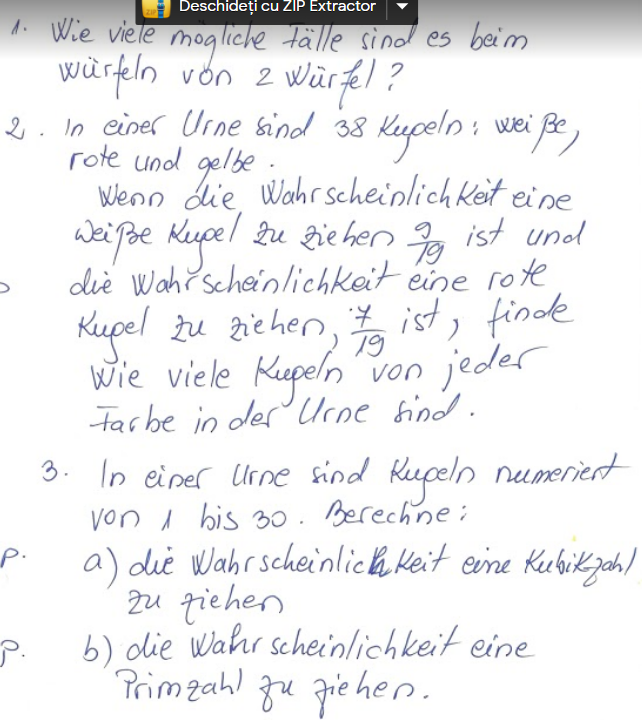 Deschideți cu ZIP Extractor
1. Wie viele mögliche Fälle sind es beim
würfeln von 2 Würfel?
2. In einer Urne sind 38 Kugeln: weiße,
rote und gelbe.
Wenn die Wahrscheinlichkeit eine
weiße Kugel zu ziehen 9/19 ist und
die Wahrscheinlichkeit eine rote
Kugel zu ziehen, 7/19 ist, finde
wie viele Kugeln von jeder
Farbe in der Urne sind.
3. In einer Urne sind Kugeln numeriert
von 1 bis 30. Berechne:
p. a) die Wahrscheinlichkeit eine Kubikzahl
zu ziehen
p. b) die Wahrscheinlichkeit eine
Primzahl zu ziehen.